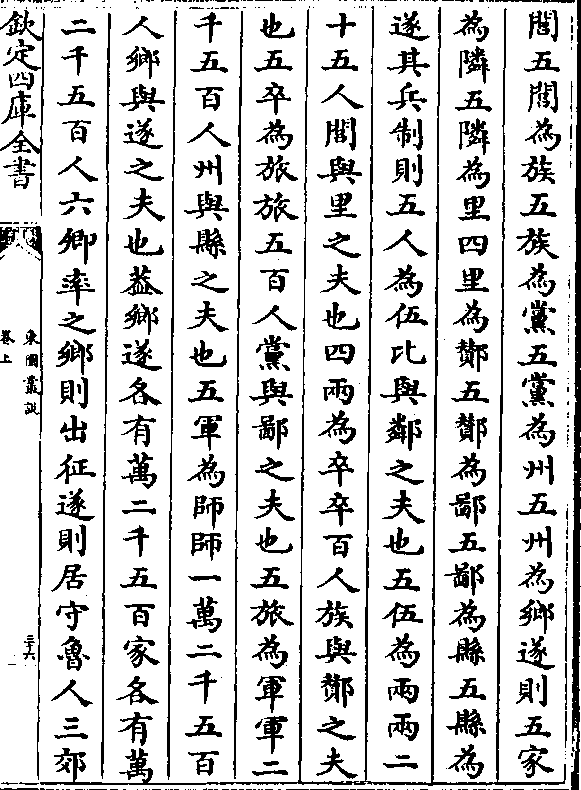 閭五閭為族五族為黨五黨為州五州為鄉遂則五家
為隣五隣為里四里為酇五酇為鄙五鄙為縣五縣為
遂其兵制則五人為伍比與鄰之夫也五伍為兩兩二
十五人閭與里之夫也四兩為卒卒百人族與酇之夫
也五卒為旅旅五百人黨與鄙之夫也五旅為軍軍二
千五百人州與縣之夫也五軍為師師一萬二千五百
人鄉與遂之夫也葢鄉遂各有萬二千五百家各有萬
二千五百人六卿率之鄉則出征遂則居守魯人三郊
欽定四庫全書
東園叢說
卷上